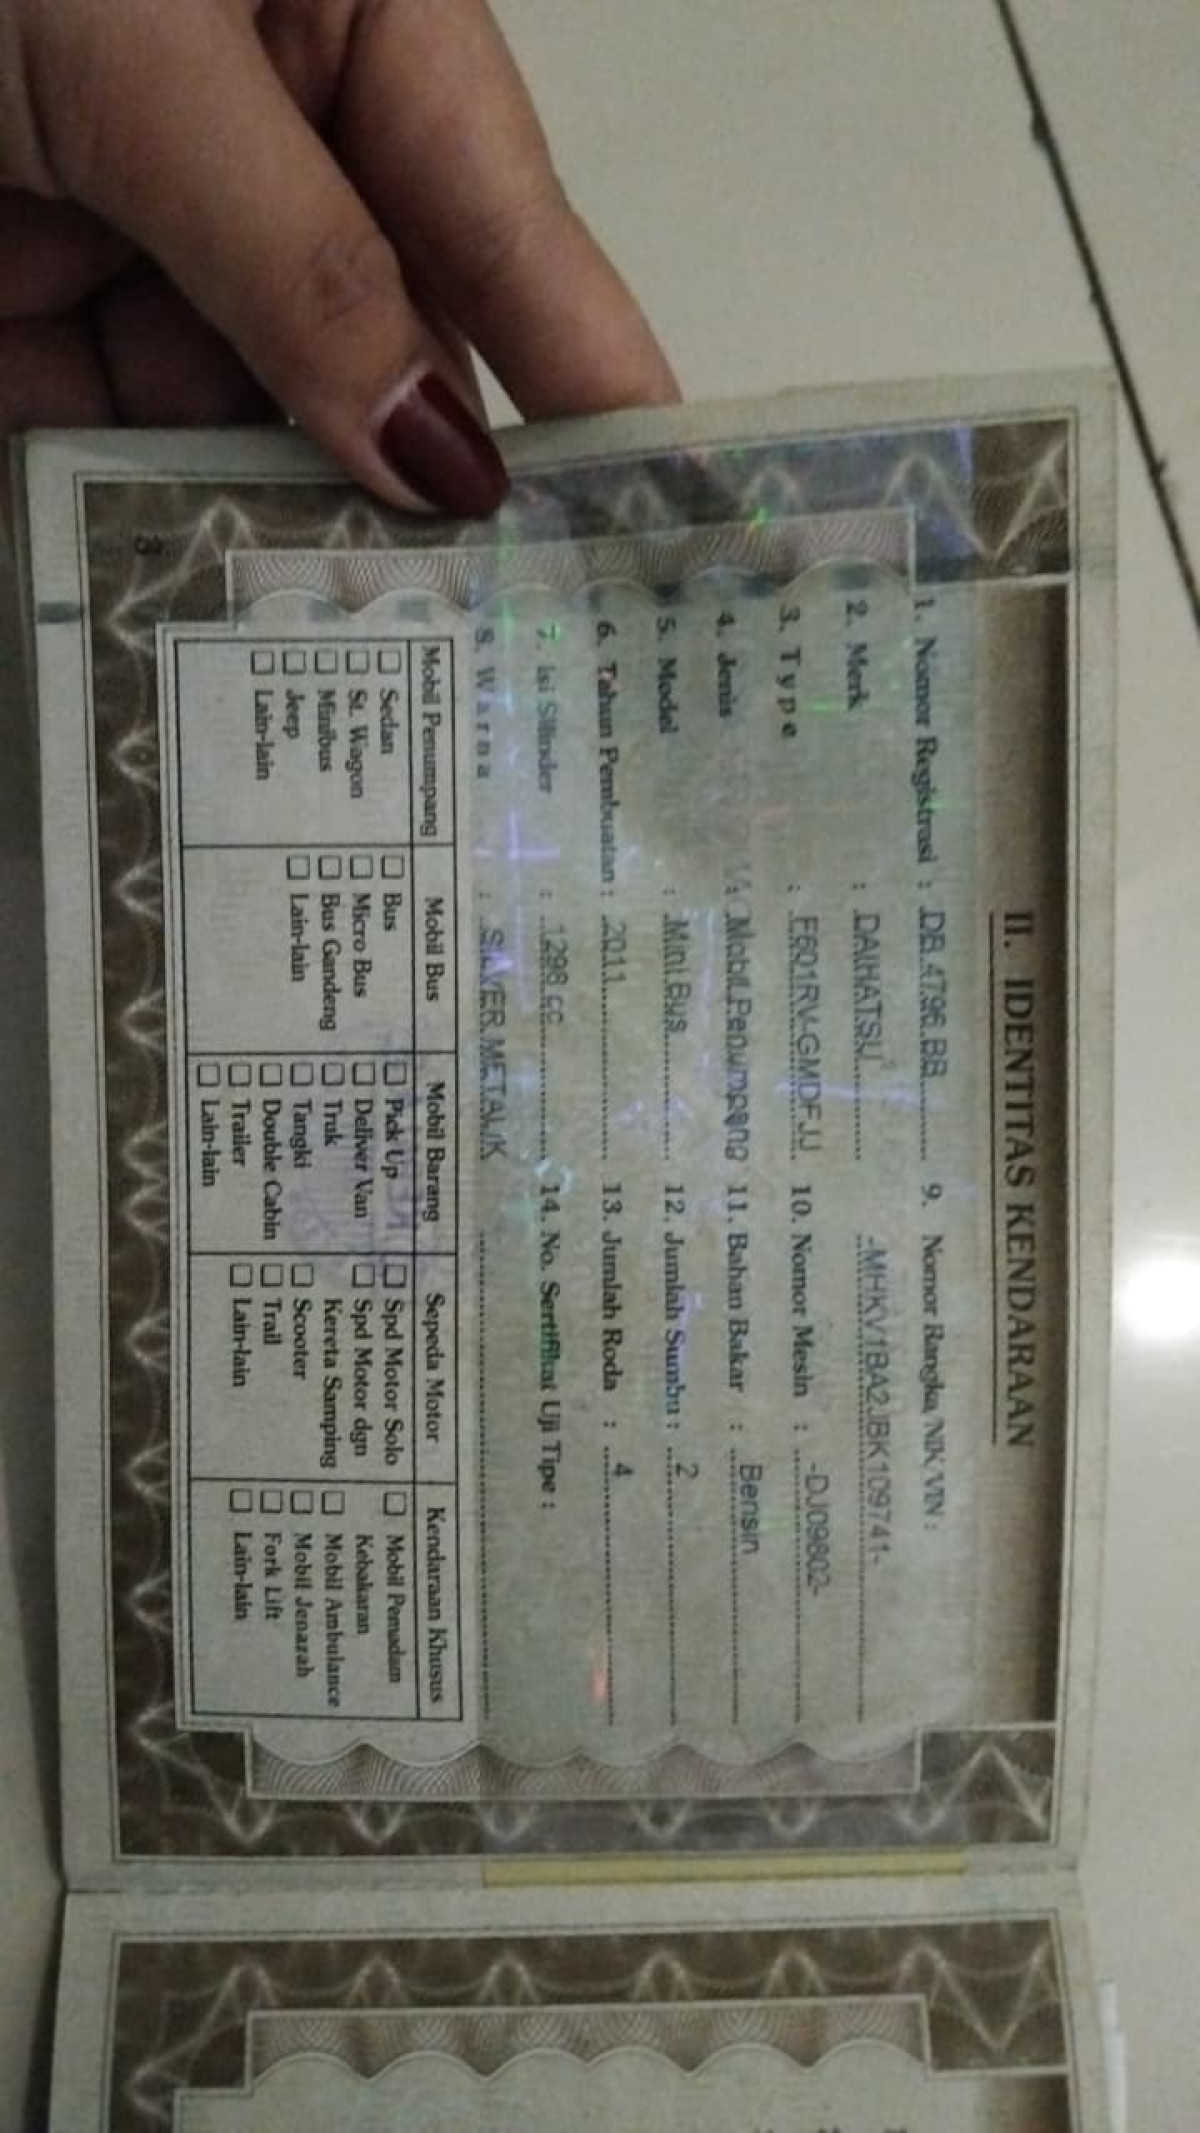 II. IDENTITAS KENDARAAN
1. Nomor Registrasi : DB 4796 BB
2. Merk : DAIHATSU
3. Type : F601RV-GMDFJJ
4. Jenis : Mobil Penumpang
5. Model : Mini Bus
6. Tahun Pembuatan : 2011
7. Isi Silinder : 1298 cc
8. Warna : SILVER METALIK
9. Nomor Rangka/NIK/VIN :
-MHKV1BA2JBK109741-
10. Nomor Mesin : -DJ09802-
11. Bahan Bakar : Bensin
12. Jumlah Sumbu : 2
13. Jumlah Roda : 4
14. No. Sertifikat Uji Tipe :
Mobil Penumpang
Sedan
St. Wagon
Minibus
Jeep
Lain-lain
Mobil Bus
Bus
Micro Bus
Bus Gandeng
Lain-lain
Mobil Barang
Pick Up
Deliver Van
Truk
Tangki
Double Cabin
Trailer
Lain-lain
Sepeda Motor
Spd Motor Solo
Spd Motor dgn
Kereta Samping
Scooter
Trail
Lain-lain
Kendaraan Khusus
Mobil Pemadam
Kebakaran
Mobil Ambulance
Mobil Jenazah
Fork Lift
Lain-lain
3